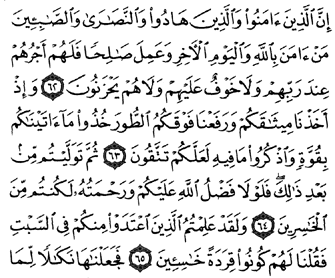 إِنَّ ٱلَّذِينَ ءَامَنُوا۟ وَٱلَّذِينَ هَادُوا۟ وَٱلنَّصَٰرَىٰ وَٱلصَّٰبِـِٔينَ
مَنْ ءَامَنَ بِٱللَّهِ وَٱلْيَوْمِ ٱلْءَاخِرِ وَعَمِلَ صَٰلِحًا فَلَهُمْ أَجْرُهُمْ
عِندَ رَبِّهِمْ وَلَا خَوْفٌ عَلَيْهِمْ وَلَا هُمْ يَحْزَنُونَ ٦٢ وَإِذْ
أَخَذْنَا مِيثَٰقَكُمْ وَرَفَعْنَا فَوْقَكُمُ ٱلطُّورَ خُذُوا۟ مَآ ءَاتَيْنَٰكُم
بِقُوَّةٍ وَٱذْكُرُوا۟ مَا فِيهِ لَعَلَّكُمْ تَتَّقُونَ ٦٣ ثُمَّ تَوَلَّيْتُم مِّنۢ
بَعْدِ ذَٰلِكَ ۖ فَلَوْلَا فَضْلُ ٱللَّهِ عَلَيْكُمْ وَرَحْمَتُهُۥ لَكُنتُم مِّنَ
ٱلْخَٰسِرِينَ ٦٤ وَلَقَدْ عَلِمْتُمُ ٱلَّذِينَ ٱعْتَدَوْا۟ مِنكُمْ فِى ٱلسَّبْتِ
فَقُلْنَا لَهُمْ كُونُوا۟ قِرَدَةً خَٰسِـِٔينَ ٦٥ فَجَعَلْنَٰهَا نَكَٰلًا لِّمَا